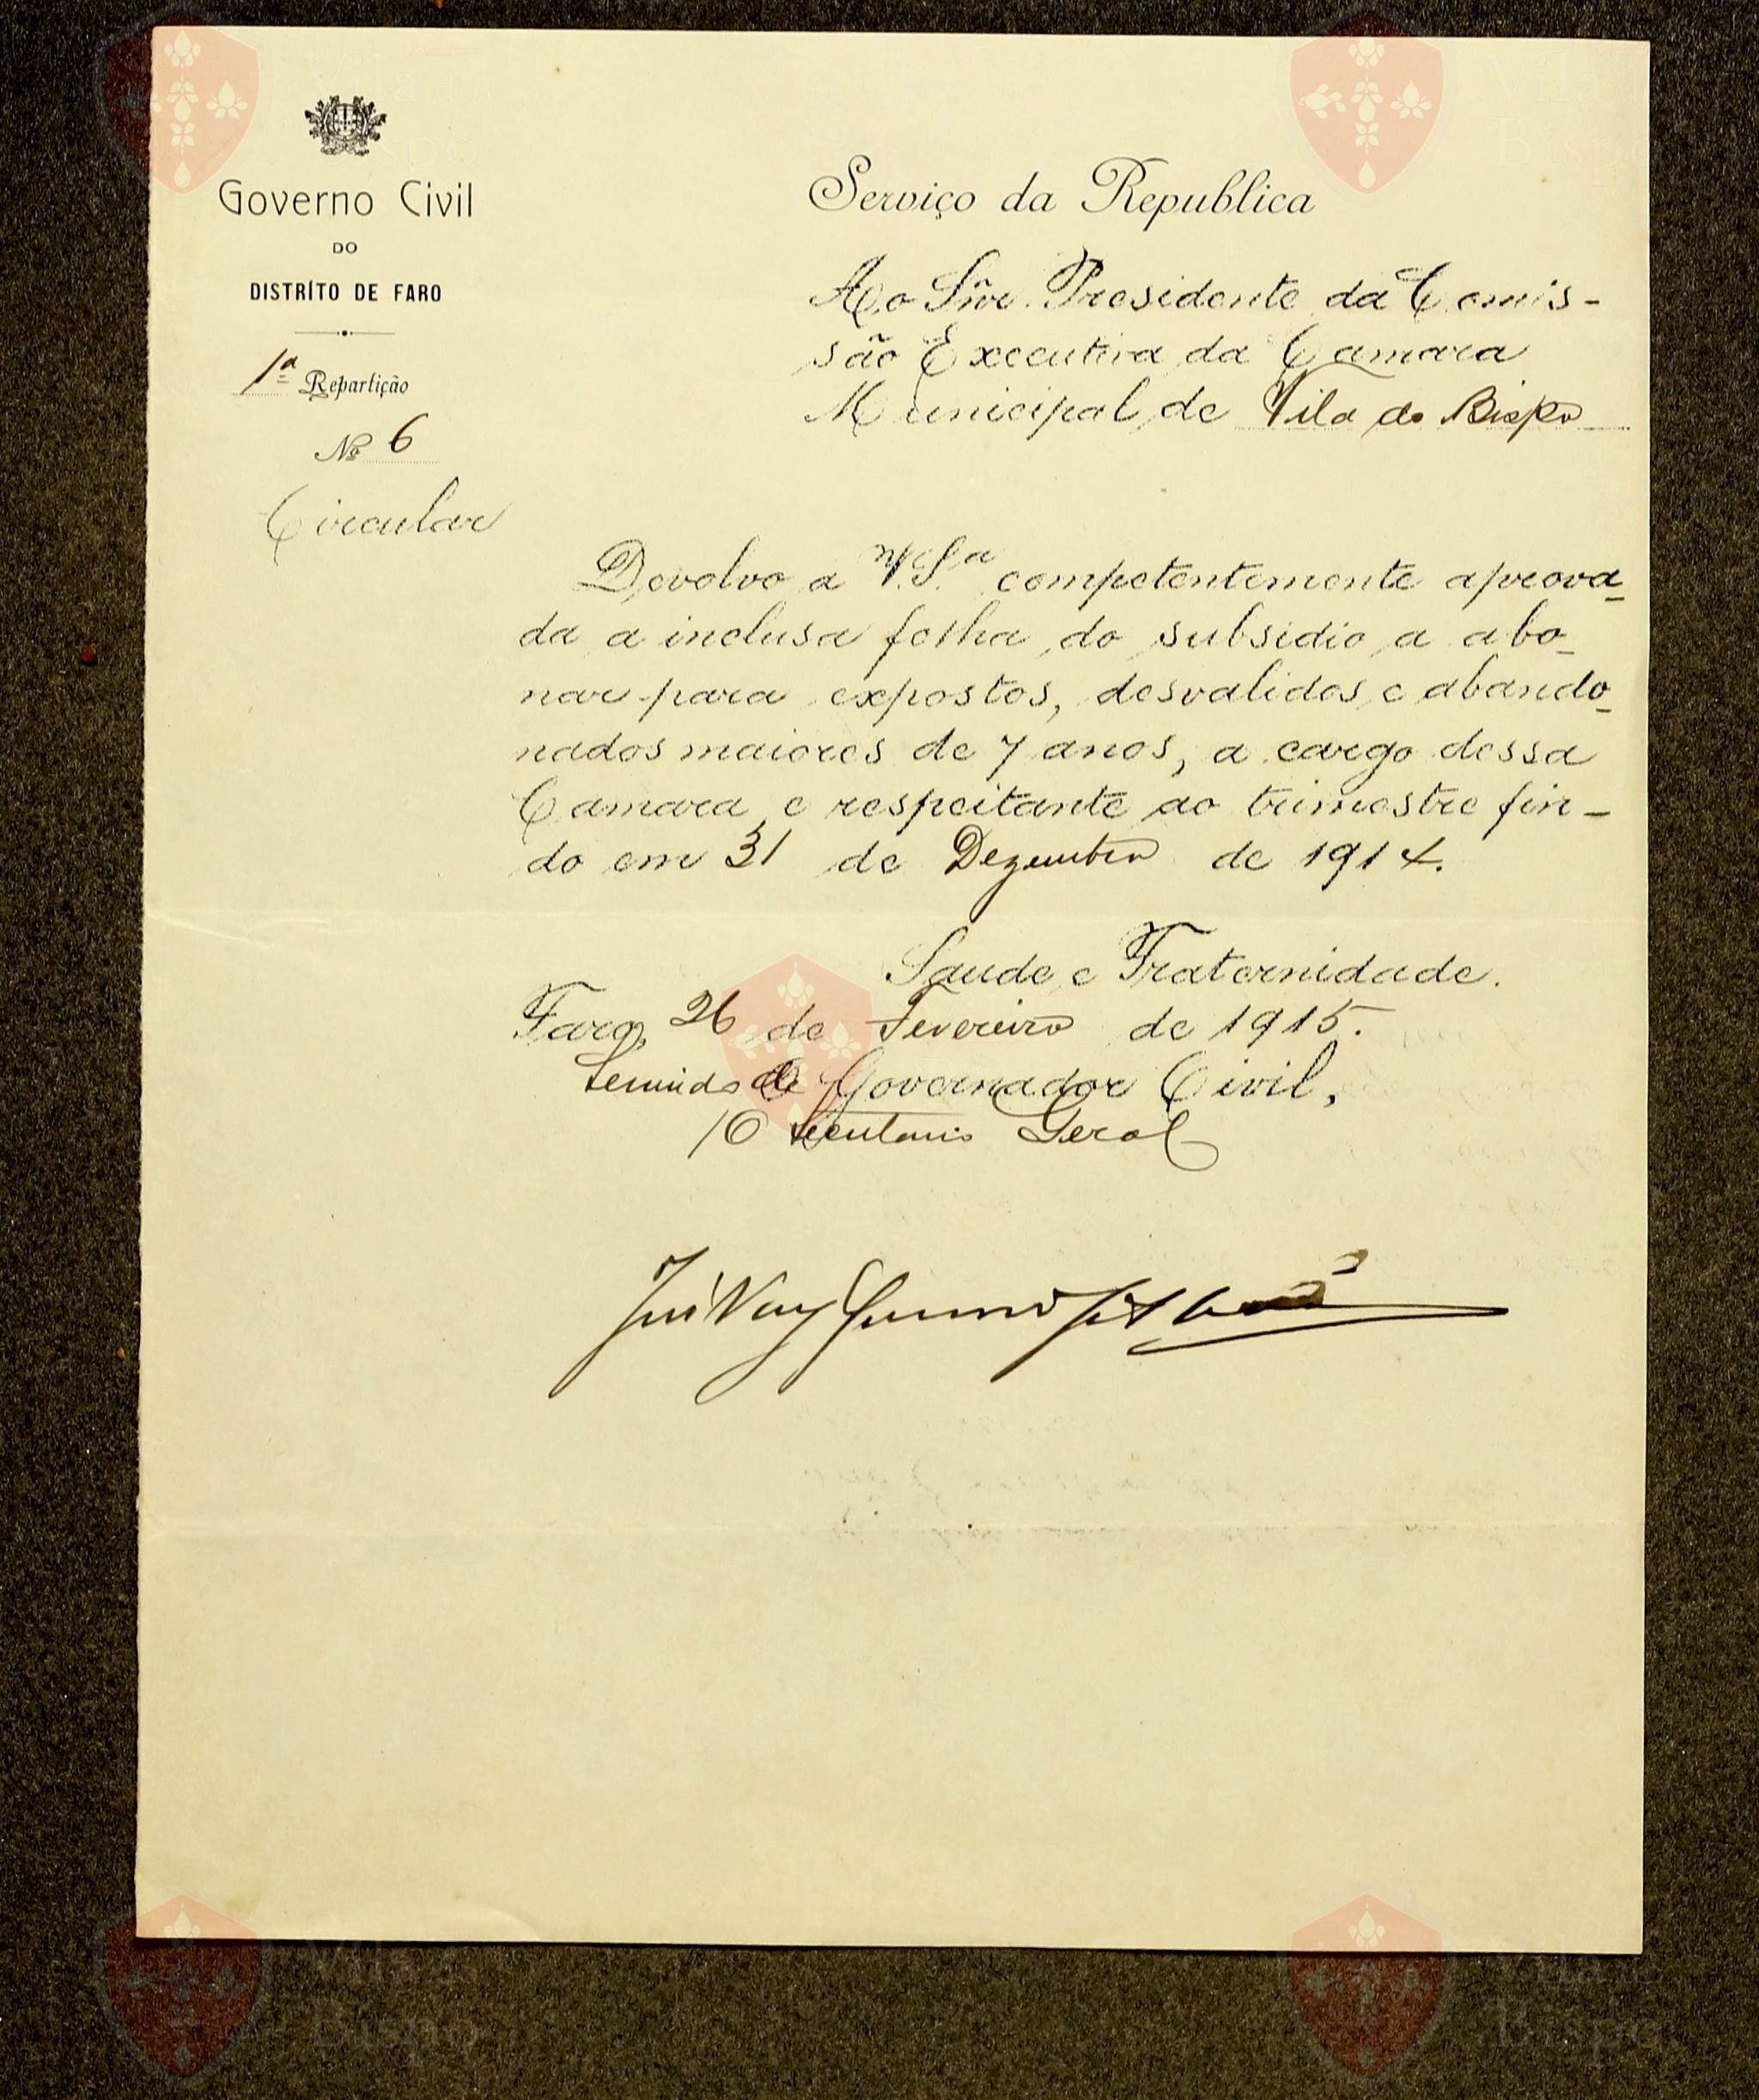 Governo Civil
DO
DISTRÍTO DE FARO
1ª Repartição
Nº 6
Circular
Serviço da Republica
Ao Snr. Presidente da Comis-
são Executiva da Camara
Municipal de Vila do Bispo
Devolvo a V. S.ª competentemente aprova-
da a inclusa folha do subsidio a abo-
nar para expostos, desvalidos e abando-
nados maiores de 7 anos, a cargo dessa
Camara e respeitante ao trimestre fin-
do em 31 de Dezembro de 1914.
Saude e Fraternidade.
Faro, 26 de Fevereiro de 1915.
Servindo de Governador Civil,
O Secretario Geral
José Vaz
Vila do
Bispo